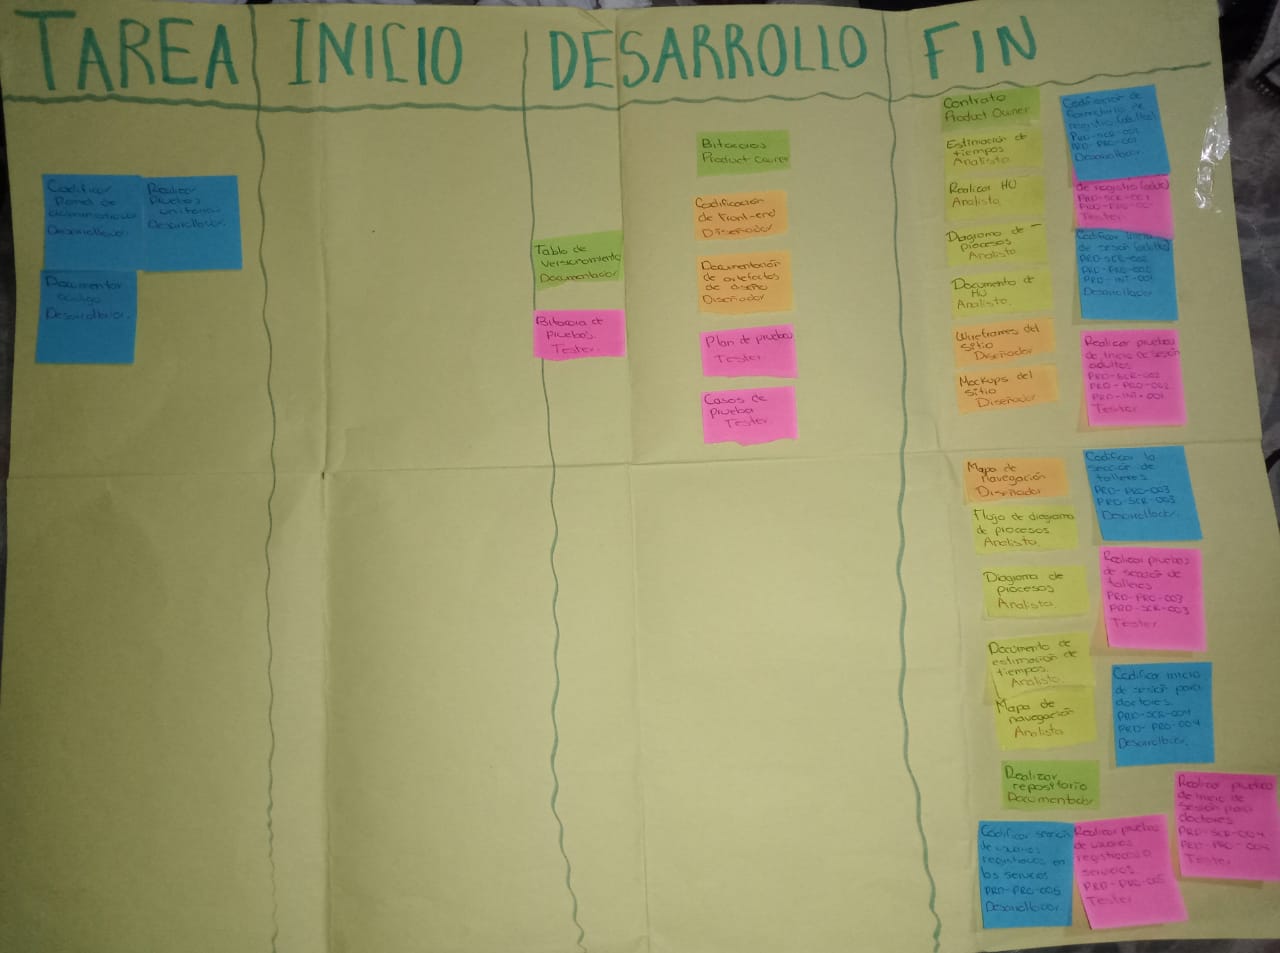 TAREA
INICIO
DESARROLLO
FIN
Codificar
Panel de
administrador
Desarrollador.
Realizar
Pruebas
unitarias
Desarrollador.
Documentar
código
Desarrollador.
Tabla de
versionamiento
Documentador
Bitacora de
pruebas.
Tester.
Bitacoras
Product Owner
Codificación
de Front-end
Diseñador
Documentación
de artefactos
de diseño
Diseñador
Plan de pruebas
Tester
Casos de
prueba
Tester
Contrato
Product Owner
Estimación de
tiempos
Analista
Realizar HU
Analista.
Diagrama de
procesos
Analista
Documento de
HU
Analista.
Wireframes del
sitio
Diseñador
Mockups del
sitio
Diseñador
Mapa de
navegación
Diseñador
Flujo de diagrama
de procesos
Analista
Diagrama de
procesos
Analista.
Documento de
estimación de
tiempos.
Analista.
Mapa de
navegación
Analista
Realizar
repositorio
Documentador
Codificación de
formulario de
registro
PRD-SCR-001
PRD-PRO-001
Desarrollador.
de registro
PRD-SCR-001
Tester
Codificar inicio
de sesión
PRD-SCR-002
PRD-PRO-002
PRD-INT-001
Desarrollador
Realizar pruebas
de inicio de sesión
adultos
PRD-SCR-002
PRD-PRO-002
PRD-INT-001
Tester
Codificar la
sección de
talleres
PRD-PRO-003
PRD-SCR-003
Desarrollador.
Realizar pruebas
de sección de
talleres
PRD-PRO-003
PRD-SCR-003
Tester
Codificar inicio
de sesión para
doctores.
PRD-SCR-004
PRD-PRO-004
Desarrollador.
Realizar pruebas
de inicio de
sesión para
doctores
PRD-SCR-004
PRD-PRO-004
Tester
Codificar sección
de usuarios
registrados en
los servicios
PRD-PRO-005
Desarrollador.
Realizar pruebas
de usuarios
registrados a
servicios.
PRD-PRO-005
Tester